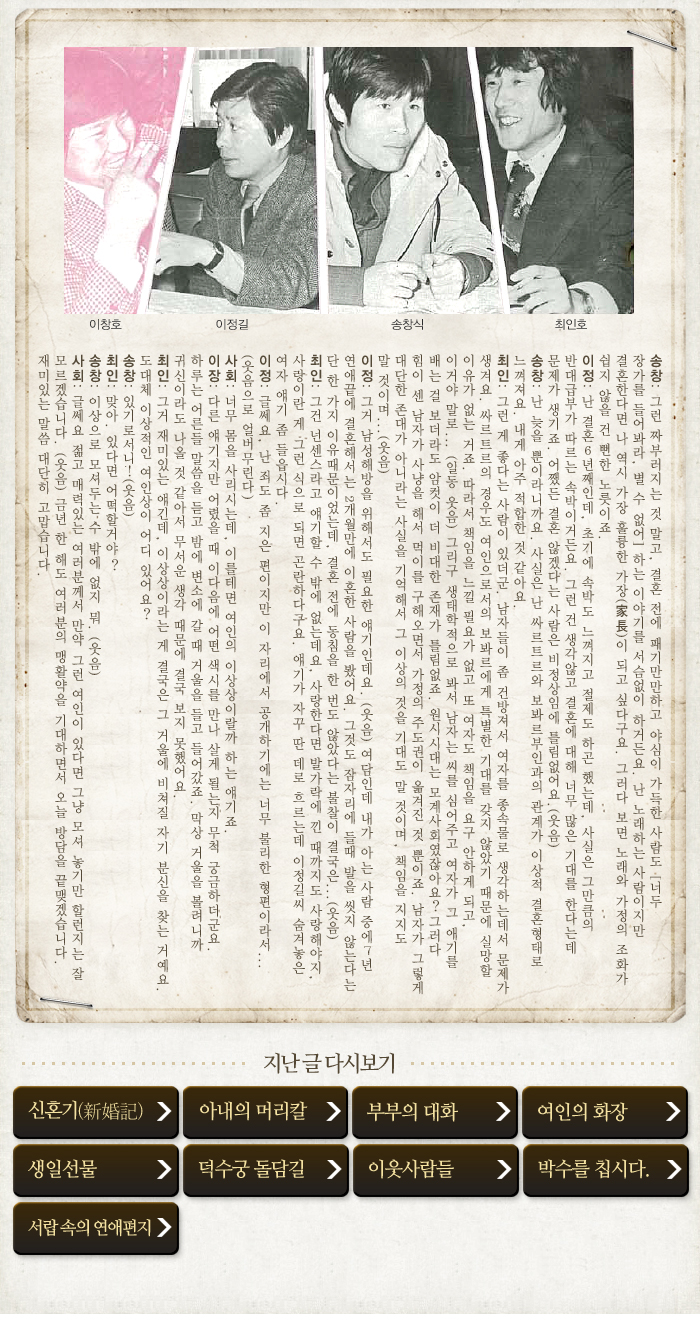 이창호
이정길
송창식
최인호
송창: 그런 짜부러지는 것 말고, 결혼 전에 패기만만하고 야심이 가득한 사람도 「너두
장가를 들어봐라. 별 수 없어」 하는 이야기를 서슴없이 하거든요. 난 노래하는 사람이지만
결혼한다면 나 역시 가장 훌륭한 가장(家長)이 되고 싶다구요. 그러다 보면 노래와 가정의 조화가
쉽지 않을 건 뻔한 노릇이죠.
이정: 난 결혼 6년째인데, 초기에 속박도 느껴지고 절제도 하곤 했는데, 사실은 그만큼의
반대급부가 따르는 속박이거든요. 그런 건 생각않고 결혼에 대해 너무 많은 기대를 한다는데
문제가 생기죠. 어쨌든 결혼 않겠다는 사람은 비정상임에 틀림없어요.(웃음)
송창: 난 늦을 뿐이라니까요. 사실은 난 싸르트르와 보봐르부인과의 관계가 이상적 결혼형태로
느껴져요. 내게 아주 적합한 것 같아요.
최인: 그런 게 좋다는 사람이 있더군. 남자들이 좀 건방져서 여자를 종속물로 생각하는데서 문제가
생겨요. 싸르트르의 경우도 여인으로서의 보봐르에게 특별한 기대를 갖지 않았기 때문에 실망할
이유가 없는 거죠. 따라서 책임을 느낄 필요가 없고 또 여자도 책임을 요구 안하게 되고,
이거야 말로… (일동 웃음) 그리구 생태학적으로 봐서 남자는 씨를 심어주고 여자가 그 얘기를
배는 걸 보더라도 암컷이 더 비대한 존재가 틀림없죠. 원시시대는 모계사회였잖아요? 그러다
힘이 센 남자가 사냥을 해서 먹이를 구해오면서 가정의 주도권이 옮겨진 것 뿐이죠. 남자가 그렇게
대단한 존재가 아니라는 사실을 기억해서 그 이상의 것을 기대도 말 것이며, 책임을 지지도
말 것이며…(웃음)
이정: 그거, 남성해방을 위해서도 필요한 얘기인데요. (웃음) 여담인데 내가 아는 사람 중에 7년
연애끝에 결혼해서는 2개월만에 이혼한 사람을 봤어요. 그것도 잠자리에 들때 발을 씻지 않는다는
단 한 가지 이유때문이었는데, 결혼 전에 동침을 한 번도 않았다는 불찰이 결국은…(웃음)
최인: 그건 넌센스라고 얘기할 수 밖에 없는데요. 사랑한다면 발가락에 낀 때까지도 사랑해야지.
사랑이란 게 그런 식으로 되면 곤란하다구요. 얘기가 자꾸 딴 데로 흐르는데 이정길씨 숨겨놓은
여자 얘기 좀 들읍시다.
이정: 글쎄요. 난 죄도 좀 지은 편이지만 이 자리에서 공개하기에는 너무 불리한 형편이라서…
(웃음으로 얼버무린다)
사회: 너무 몸을 사리시는데, 이를테면 여인의 이상상이랄까 하는 얘기죠.
이창: 다른 얘기지만 어렸을 때 이다음에 어떤 색시를 만나 살게 될는지 무척 궁금하더군요.
하루는 어른들 말씀을 듣고 밤에 변소에 갈 때 거울을 들고 들어갔죠. 막상 거울을 볼려니까
귀신이라도 나올 것 같아서 무서운 생각 때문에 결국 보지 못했어요.
최인: 그거 재미있는 얘긴데, 이상상이라는 게 결국은 그 거울에 비쳐질 자기 분신을 찾는 거예요.
도대체 이상적인 여인상이 어디 있어요?
송창: 있기로서니!(웃음)
최인: 맞아. 있다면 어떡할거야?
송창: 이상으로 모셔두는 수 밖에 없지 뭐. (웃음)
사회: 글쎄요. 젊고 매력있는 여러분께서 만약 그런 여인이 있다면 그냥 모셔 놓기만 할런지는 잘
모르겠습니다. (웃음) 금년 한 해도 여러분의 맹활약을 기대하면서 오늘 방담을 끝맺겠습니다.
재미있는 말씀, 대단히 고맙습니다.
지난 글 다시보기
신혼기(新婚記)
아내의 머리칼
부부의 대화
여인의 화장
생일선물
덕수궁 돌담길
이웃사람들
박수를 칩시다.
서랍 속의 연애편지